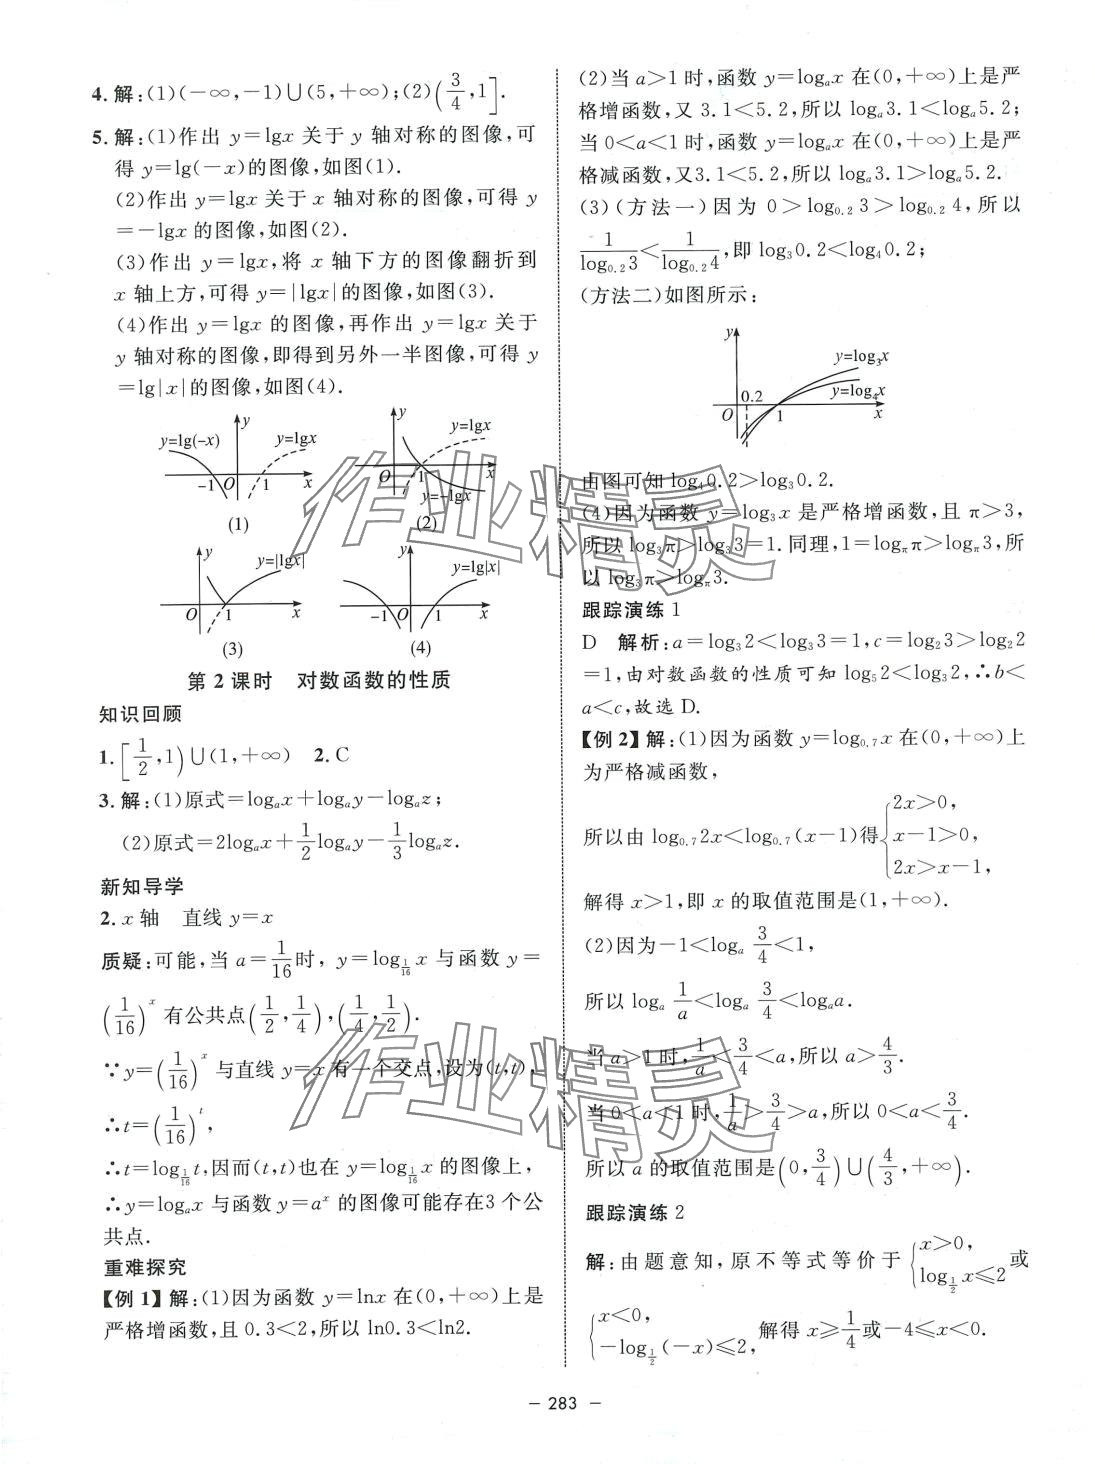 4. 解:(1)(-∞,-1)∪(5,+∞);(2)(3/4,1].
5. 解:(1)作出 y=lgx 关于 y 轴对称的图像,可
得 y=lg(-x)的图像,如图(1).
(2)作出 y=lgx 关于 x 轴对称的图像,可得 y
=-lgx 的图像,如图(2).
(3)作出 y=lgx,将 x 轴下方的图像翻折到
x 轴上方,可得 y=|lgx|的图像,如图(3).
(4)作出 y=lgx 的图像,再作出 y=lgx 关于
y 轴对称的图像,即得到另外一半图像,可得 y
=lg|x|的图像,如图(4).
y=lg(-x) y y=lgx -1 O 1 x
(1)
y y=lgx O 1 x y=-lgx
(2)
y y=|lgx| O 1 x
(3)
y y=lg|x| -1 O 1 x
(4)
第 2 课时 对数函数的性质
知识回顾
1. [1/2,1)∪(1,+∞) 2. C
3. 解:(1)原式=logₐx+logₐy-logₐz;
(2)原式=2logₐx+1/2logₐy-1/3logₐz.
新知导学
2. x 轴 直线 y=x
质疑:可能,当 a=1/16时, y=log_{1/16} x 与函数 y=
(1/16)^x 有公共点(1/2,1/4),(1/4,1/2).
∵y=(1/16)^x 与直线 y=x 有一个交点,设为(t,t),
∴t=(1/16)^t,
∴t=log_{1/16} t,因而(t,t)也在 y=log_{1/16} x 的图像上,
∴y=logₐx 与函数 y=a^x 的图像可能存在3 个公
共点.
重难探究
【例 1】解:(1)因为函数 y=lnx 在(0,+∞)上是
严格增函数,且 0.3<2,所以 ln0.3<ln2.
(2)当 a>1 时,函数 y=logₐx 在(0,+∞)上是严
格增函数,又 3.1<5.2,所以 logₐ3.1<logₐ5.2;
当 0<a<1 时,函数 y=logₐx 在(0,+∞)上是严
格减函数,又3.1<5.2,所以 logₐ3.1>logₐ5.2.
(3)(方法一)因为 0>log_{0.2}3>log_{0.2}4,所以
1/log_{0.2}3<1/log_{0.2}4,即 log₃0.2<log₄0.2;
(方法二)如图所示:
y y=log₃x 0.2 y=log₄x O 1 x
由图可知 log₄0.2>log₃0.2.
(4)因为函数 y=log₃x 是严格增函数,且 π>3,
所以 log₃π>log₃3=1.同理,1=log_π π>log_π 3,所
以 log₃π>log_π 3.
跟踪演练 1
D 解析:a=log₃2<log₃3=1,c=log₂3>log₂2
=1,由对数函数的性质可知 log₅2<log₃2,∴b<
a<c,故选 D.
【例 2】解:(1)因为函数 y=log_{0.7}x 在(0,+∞)上
为严格减函数,
所以由 log_{0.7}2x<log_{0.7}(x-1)得{2x>0, x-1>0, 2x>x-1,
解得 x>1,即 x 的取值范围是(1,+∞).
(2)因为-1<logₐ 3/4<1,
所以 logₐ 1/a<logₐ 3/4<logₐa.
当 a>1 时,1/a<3/4<a,所以 a>4/3.
当 0<a<1 时,1/a>3/4>a,所以 0<a<3/4.
所以 a 的取值范围是(0,3/4)∪(4/3,+∞).
跟踪演练 2
解:由题意知,原不等式等价于{x>0, log_{1/2} x≤2或
{x<0, -log_{1/2}(-x)≤2, 解得 x≥1/4或-4≤x<0.
- 283 -
作业精灵
作业精灵